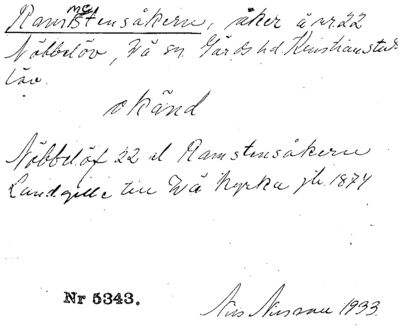 Ramstensåkern, åker å nr 22
Nöbbelöv, Vä sn. Gärds hd Kristianstads
län.
okänd
Nöbbelöf 22 el Ramstensåkern
Landgille till Wä Kyrka jb. 1874
Nr 5343.
Nils Nilsson 1933.